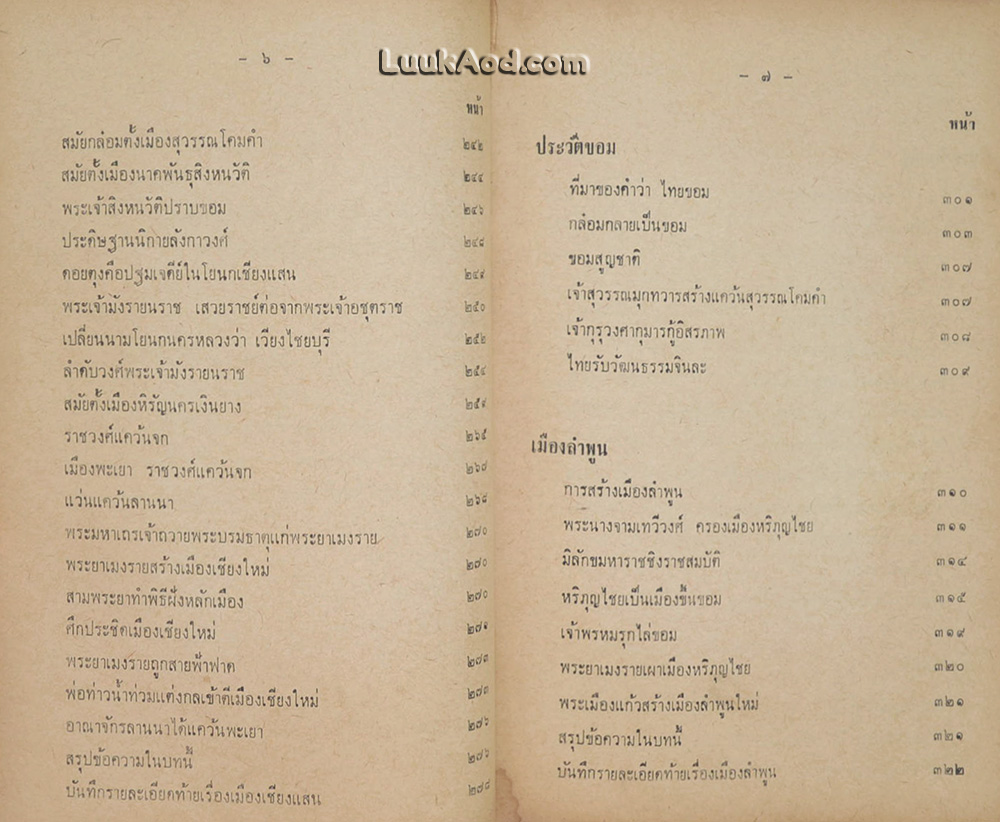 LuukAod.com
– ๖ –
หน้า
สมัยกล๋อมตั้งเมืองสุวรรณโคมคำ ๒๔๒
สมัยตั้งเมืองนาคพันธุสิงหนวัติ ๒๔๔
พระเจ้าสิงหนวัติปราบขอม ๒๔๖
ประดิษฐานนิกายลังกาวงศ์ ๒๔๘
ดอยตุงคือปฐมเจดีย์ในโยนกเชียงแสน ๒๔๙
พระเจ้ามังรายนราช เสวยราชย์ต่อจากพระเจ้าอชุตราช ๒๕๐
เปลี่ยนนามโยนกนครหลวงว่า เวียงไชยบุรี ๒๕๒
ลำดับวงศ์พระเจ้ามังรายนราช ๒๕๔
สมัยตั้งเมืองหิรัญนครเงินยาง ๒๕๙
ราชวงศ์แคว้นจก ๒๖๕
เมืองพะเยา ราชวงศ์แคว้นจก ๒๖๘
แว่นแคว้นลานนา ๒๖๘
พระมหาเถรเจ้าถวายพระบรมธาตุแก่พระยาเมงราย ๒๗๐
พระยาเมงรายสร้างเมืองเชียงใหม่ ๒๗๐
สามพระยาทำพิธีฝังหลักเมือง ๒๗๐
ศึกประชิดเมืองเชียงใหม่ ๒๗๑
พระยาเมงรายถูกสายฟ้าฟาด ๒๗๓
พ่อท่าวน้ำท่วมแต่งกลเข้าตีเมืองเชียงใหม่ ๒๗๓
อาณาจักรลานนาได้แคว้นพะเยา ๒๗๖
สรุปข้อความในบทนี้ ๒๗๖
บันทึกรายละเอียดท้ายเรื่องเมืองเชียงแสน ๒๗๘
– ๗ –
หน้า
ประวัติขอม
ที่มาของคำว่า ไทยขอม ๓๐๑
กล๋อมกลายเป็นขอม ๓๐๓
ขอมสูญชาติ ๓๐๗
เจ้าสุวรรณมุกทวารสร้างแคว้นสุวรรณโคมคำ ๓๐๗
เจ้ากุรุวงศากุมารกู้อิสรภาพ ๓๐๘
ไทยรับวัฒนธรรมจินละ ๓๐๙
เมืองลำพูน
การสร้างเมืองลำพูน ๓๑๐
พระนางจามเทวีวงศ์ ครองเมืองหริภุญไชย ๓๑๑
มิลักขมหาราชชิงราชสมบัติ ๓๑๔
หริภุญไชยเป็นเมืองขึ้นขอม ๓๑๕
เจ้าพรหมรุกไล่ขอม ๓๑๙
พระยาเมงรายเผาเมืองหริภุญไชย ๓๒๐
พระเมืองแก้วสร้างเมืองลำพูนใหม่ ๓๒๑
สรุปข้อความในบทนี้ ๓๒๑
บันทึกรายละเอียดท้ายเรื่องเมืองลำพูน ๓๒๒